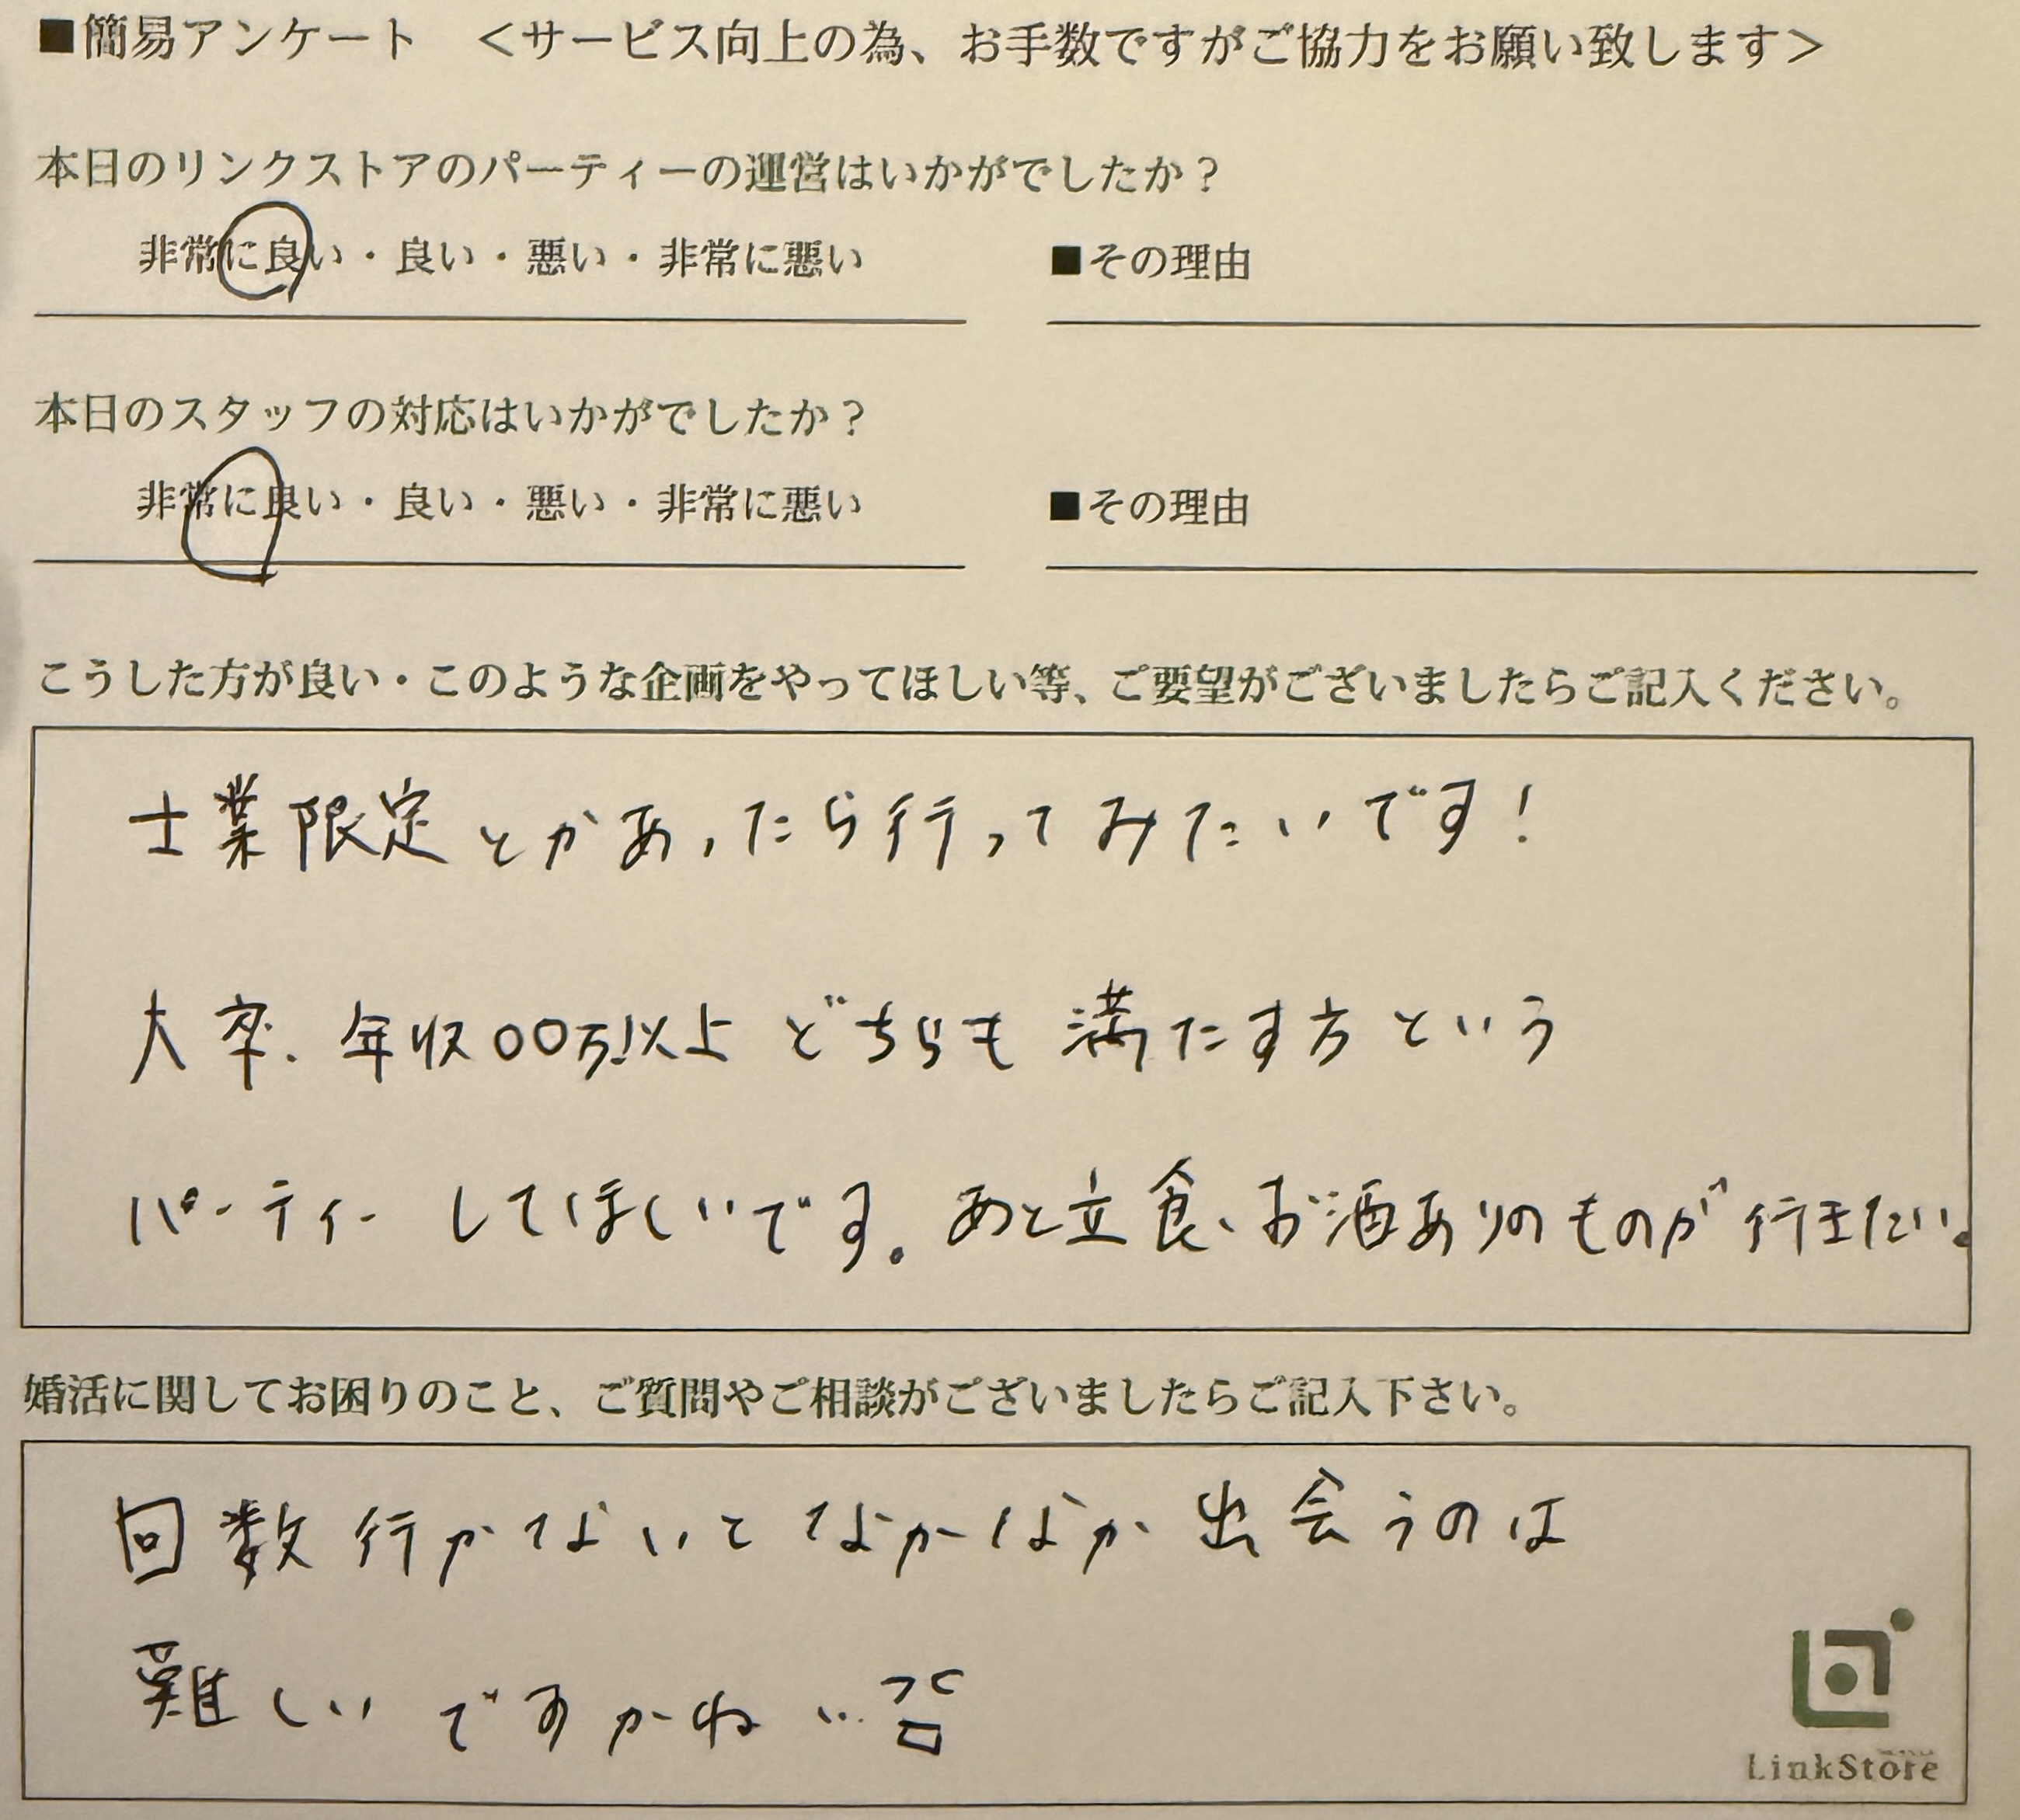 ■簡易アンケート　＜サービス向上の為、お手数ですがご協力をお願い致します＞
本日のリンクストアのパーティーの運営はいかがでしたか？
非常に良い・良い・悪い・非常に悪い　■その理由
本日のスタッフの対応はいかがでしたか？
非常に良い・良い・悪い・非常に悪い　■その理由
こうした方が良い・このような企画をやってほしい等、ご要望がございましたらご記入ください。
士業限定とかあったら行ってみたいです！
大卒、年収〇〇万以上どちらも満たす方という
パーティーしてほしいです。あと立食、お酒ありのものが行きたい。
婚活に関してお困りのこと、ご質問やご相談がございましたらご記入下さい。
回数行かないとなかなか出会うのは
難しいですかね…
LinkStore